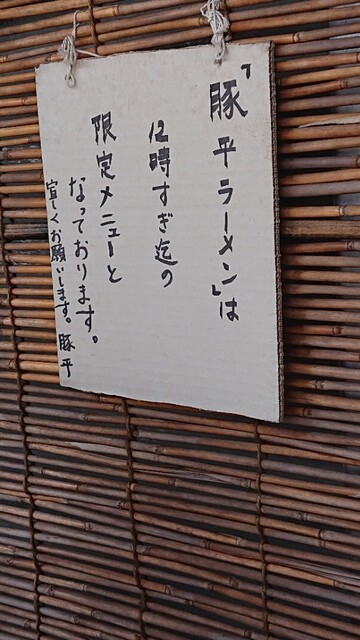 「豚平ラーメン」は
12時すぎ迄の
限定メニューと
なっております。
宜しくお願いします。豚平